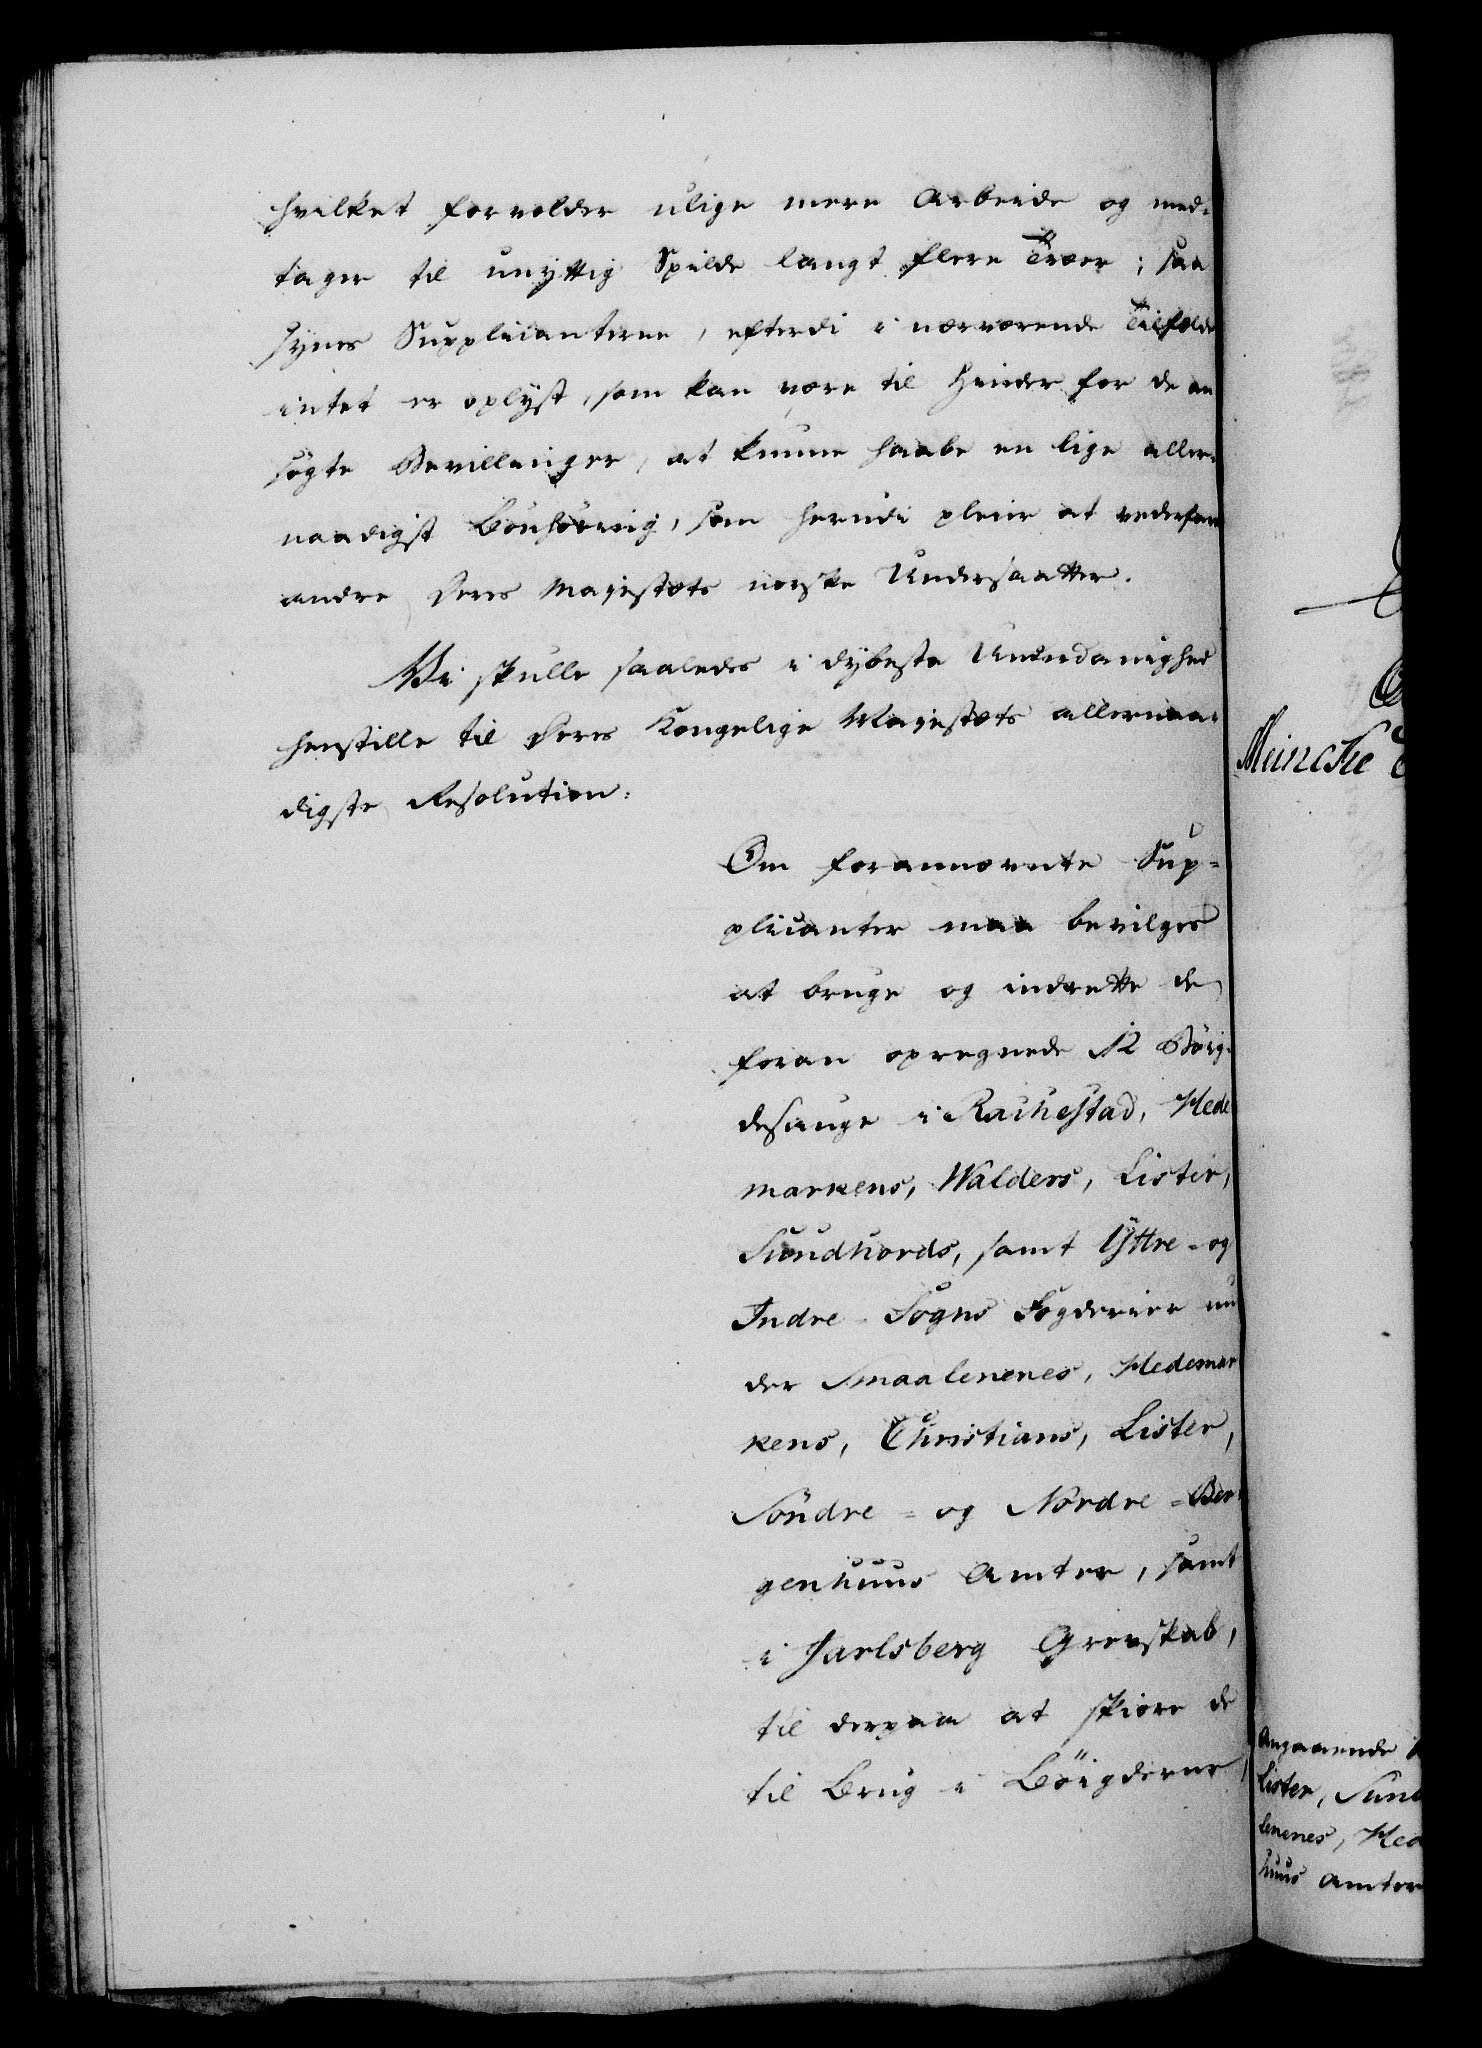 hvilket forvolder ulige mere Arbeide og med-
tager til unyttig Spilde langt flere Træer; saa
synes Supplicanterne, efterdi i nærværende Tilfælde
intet er oplyst, som kan være til Hinder for de an
søgte Bevillinger, at kunne haabe en lige aller-
naadigst Bönhörelse, som herudi pleier at vederfare
andre Deres Majestæts norske Undersaatter.
Vi skulle saaledes i dybeste Underdanighed
henstille til Deres Kongelige Majestæts allernaa-
digste Resolution:
Om forannævnte Sup-
plicanter maa bevilges
at bruge og indrette de
foran opregnede 12 Böig-
desauge i Rachestad, Hede
markens, Walders, Lister,
Sundhords, samt Yttre- og
Indre-Sogns Fogderier un
der Smaalenenes, Hedemar
kens, Christians, Lister,
Söndre- og Nordre-Ber-
genhuus Amter, samt
i Jarlsberg Grevskab,
til derpaa at skiære de
til Brug i Böigderne,
Meincke
Angaaende
Lister, Sund
lenenes, Hed
huus Amter